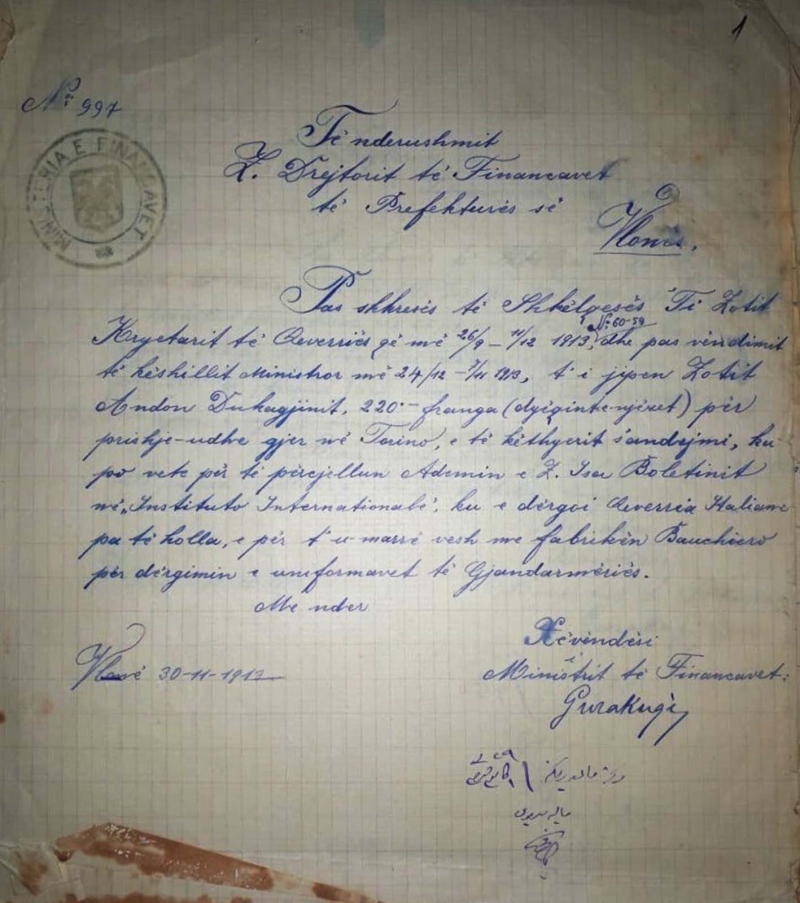 1
No 997
MINISTERIA E FINANCAVET
Të nderushmit
Z. Drejtorit të Financavet
të Prefekturës së
Vlonës.
Pas shkresës të Shkëlqesës Ti Zotit
No 60-59
Kryetarit të Qeverriës që më 26/9 - 11/12 1913, dhe pas vëndimit
të këshillit Ministror më 24/12 - 1913, t'i jipen Zotit
Andon Dukagjinit, 220.- franga (dyqintenjëzet) për
prishje-udhe gjer në Torino, e të këthyerit s'andejmi, ku
po vete për të përcjellun Ademin e Z. Isa Boletinit
në „Instituto Internationale", ku e dërgoi Qeverria Italiane
pa të holla, e për t'u marrë vesh me fabrikën Bauchiero
për dërgimin e uniformavet të Gjandarmëriës.
Me nder
Vlonë 30-11-1913
Zëvëndësi
i Ministrit të Financavet:
Gurakuqi